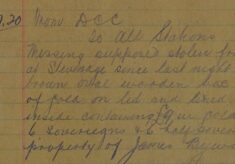 9.20 From D.S.C.
To All Stations
Missing supposed stolen from
at Steerage since last night
brown oval wooden box
of gold on lid and lined
inside containing gold
6 Sovereigns & 6 half Sovereigns
property of James